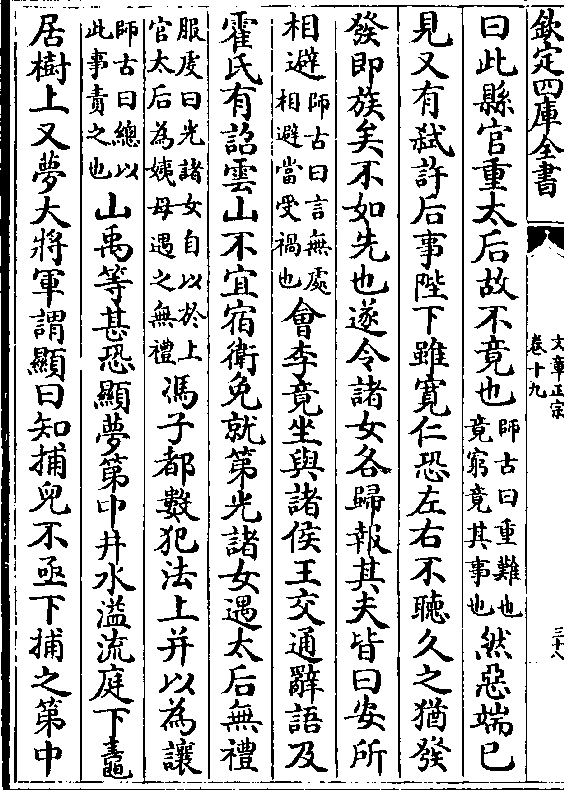 欽定四庫全書
文章正宗
卷十九
三十八
曰此縣官重太后故不竟也師古曰重難也竟窮竟其事也然惡端已
見又有弑許后事陛下雖寛仁恐左右不聽久之猶發
發即族矣不如先也遂令諸女各歸報其夫皆曰安所
相避師古曰言無處相避當受禍也會李竟坐與諸侯王交通辭語及
霍氏有詔雲山不宜宿衛免就第光諸女遇太后無禮
服虔曰光諸女自以於上官太后為姨母遇之無禮馮子都數犯法上并以為讓
師古曰總以此事責之也山禹等甚恐顯夢第中井水溢流庭下竈
居樹上又夢大將軍謂顯曰知捕兒不亟下捕之第中